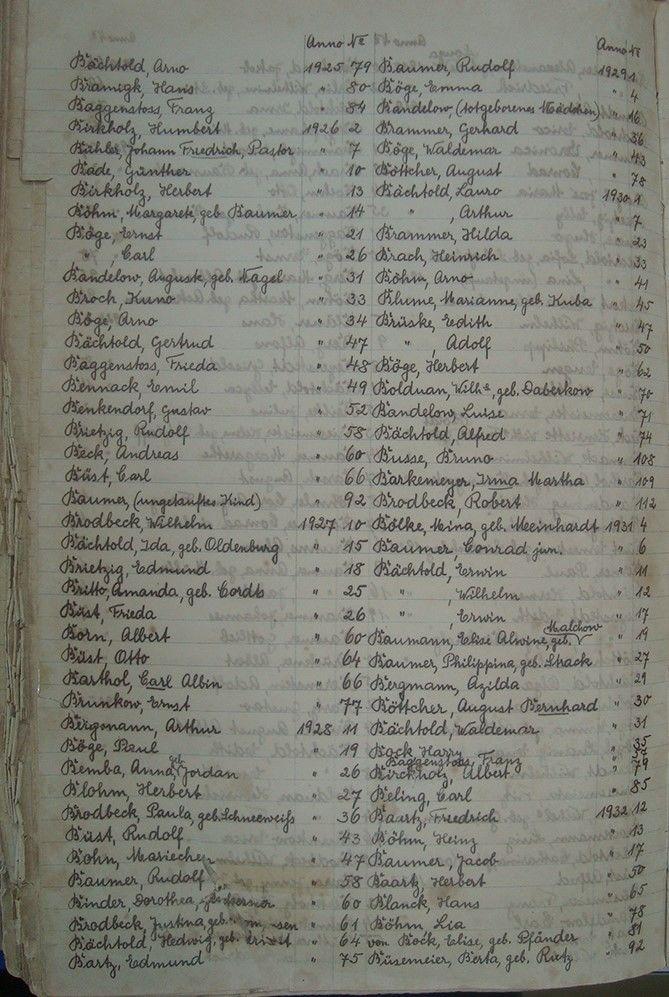 Anno №
Bächtold, Arno 1925 79
Bramigk, Hans " 80
Baggenstoss, Franz " 84
Birkholz, Humbert 1926 2
Bühler, Johann Friedrich, Pastor " 7
Bade, Günther " 10
Birkholz, Herbert " 13
Böhm, Margarete, geb. Baumer " 14
Böge, Ernst " 21
" , Carl " 26
Bandelow, Auguste, geb. Nagel " 31
Broch, Kuno " 33
Böge, Arno " 34
Bächtold, Gertrud " 47
Baggenstoss, Frieda " 48
Bennack, Emil " 49
Benkendorf, Gustav " 52
Brietzig, Rudolf " 58
Beck, Andreas " 60
Büst, Carl " 66
Baumer, (ungetauftes Kind) " 92
Brodbeck, Wilhelm 1927 10
Bächtold, Ida, geb. Oldenburg " 15
Brietzig, Edmund " 18
Britto, Amanda, geb. Cordts " 25
Büst, Frieda " 26
Born, Albert " 60
Büst, Otto " 64
Barthol, Carl Albin " 66
Brunkow, Ernst " 77
Bergmann, Arthur 1928 11
Böge, Paul " 19
Bemba, Anna, geb. Jordan " 26
Blohm, Herbert " 27
Brodbeck, Paula, geb. Schneeweiß " 36
Büst, Rudolf " 43
Böhm, Mariechen " 47
Baumer, Rudolf " 58
Binder, Dorothea, " 60
Brodbeck, Justina, geb. " 61
Bächtold, Hedwig, geb. " 64
Bartz, Edmund " 75
Anno №
Baumer, Rudolf 1929 1
Böge, Emma " 4
Bandelow, (totgeborenes Mädchen) " 16
Brammer, Gerhard " 36
Böge, Waldemar " 43
Böttcher, August " 78
Bächtold, Lauro 1930 1
" , Arthur " 7
Brammer, Hilda " 23
Brach, Heinrich " 33
Böhm, Arno " 41
Blume, Marianne, geb. Kuba " 45
Brüske, Edith " 47
" Adolf " 50
Böge, Herbert " 62
Bolduan, Wilh, geb. Daberkow " 70
Bandelow, Luise " 71
Bächtold, Alfred " 74
Busse, Bruno " 108
Barkemeyer, Irma Martha " 109
Brodbeck, Robert " 112
Bölke, Mina, geb. Meeinhardt 1931 4
Baumer, Conrad jun. " 6
Bächtold, Erwin " 11
" , Wilhelm " 12
" , Erwin " 17
Baumann, Elise Alwine, geb. Malchow " 19
Baumer, Philippina, geb. Strack " 27
Bergmann, Azilda " 29
Böttcher, August Bernhard " 30
Bächtold, Waldemar " 31
Bock, Harry " 35
Baggenstoss, Franz
Birckholz, Albert " 79
Beling, Carl " 85
Bartz, Friedrich 1932 12
Böhm, Heinz " 13
Baumer, Jacob " 17
Baartz, Herbert " 50
Blanck, Hans " 65
Böhm, Lia " 78
von Bock, Elise, geb. Pfänder " 81
Büsemeier, Berta, geb. Rietz " 92